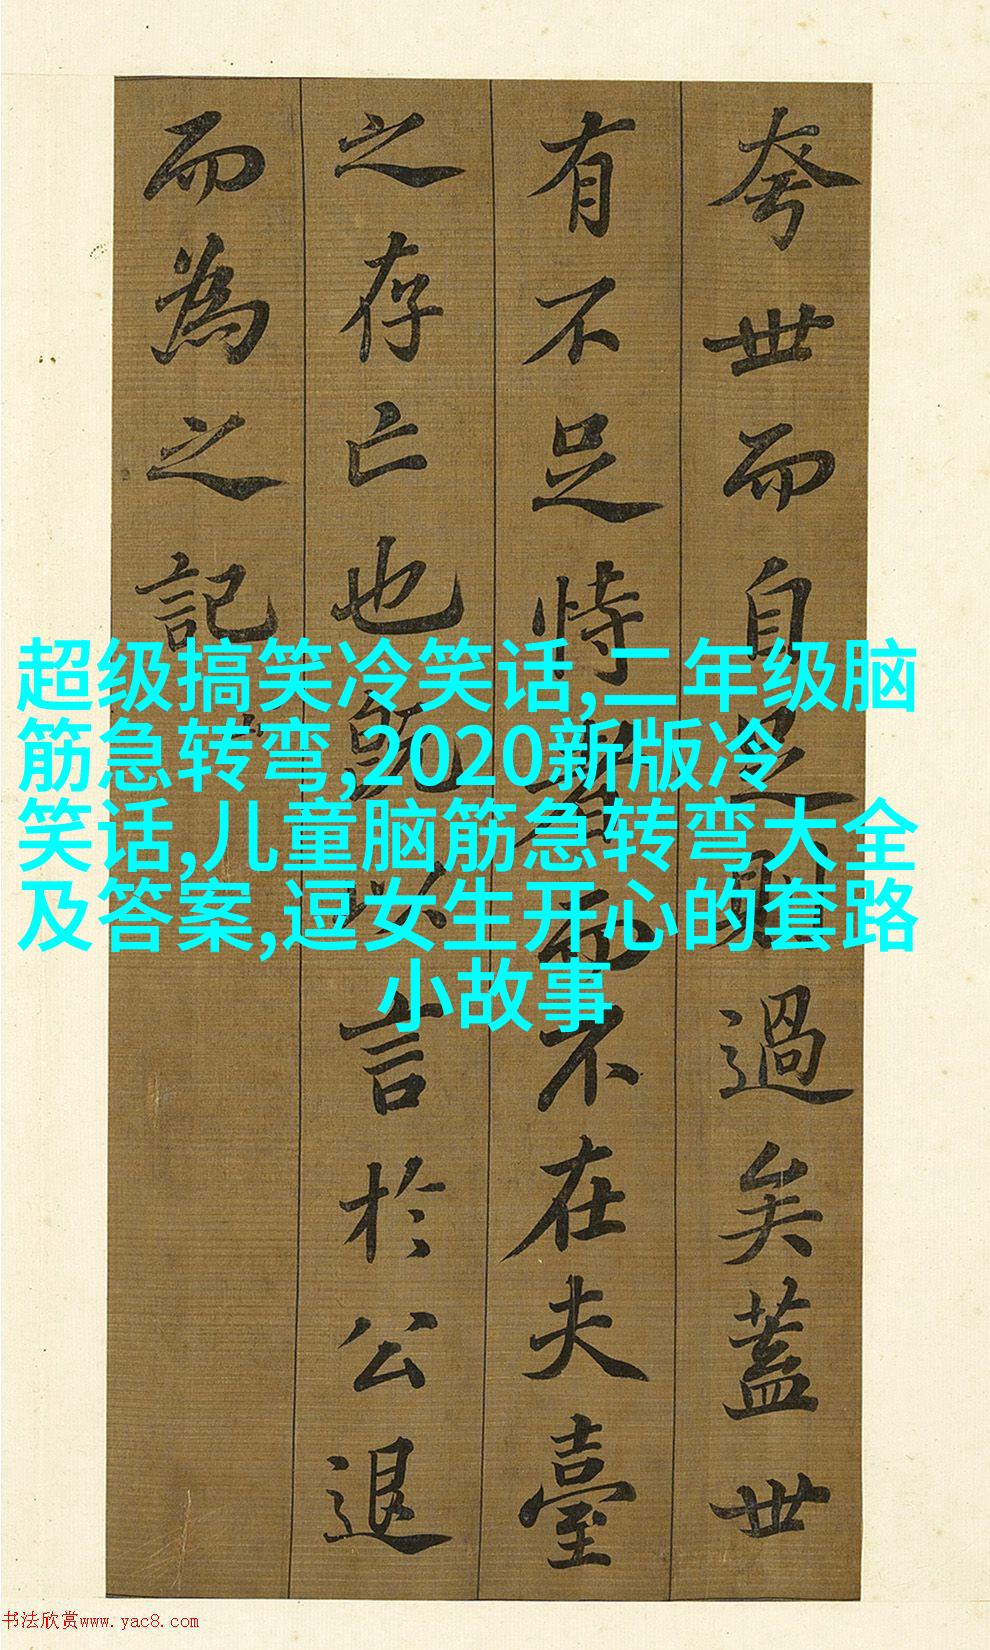 夸世而自足則過矣蓋世
有不足恃者而不在夫臺
之存亡也既以言於公退
而為之記
超级搞笑冷笑话,二年级脑
筋急转弯,2020新版冷
笑话,儿童脑筋急转弯大全
及答案,逗女生开心的套路
小故事
书法欣赏www.yac8.com